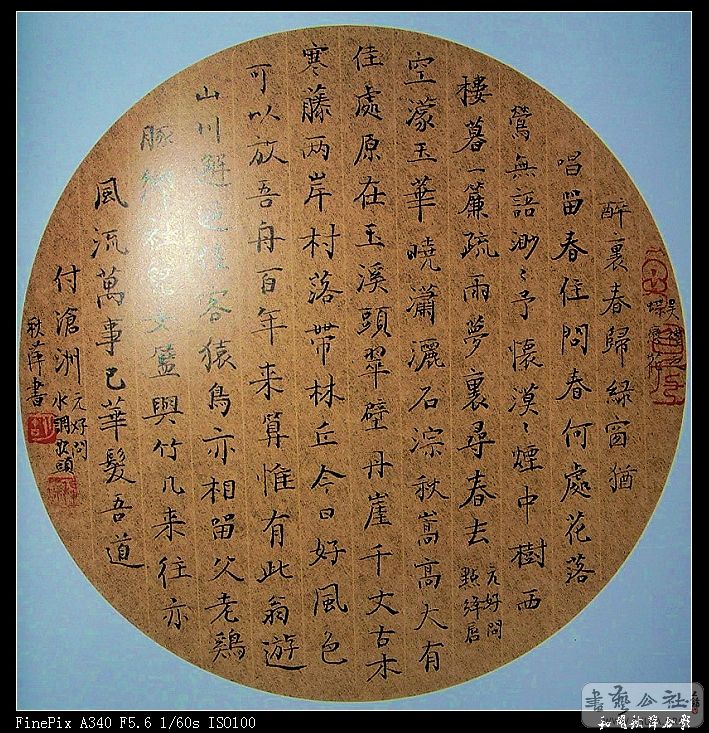 醉裏春歸綠窗猶
唱留春住問春何處花落
鶯無語渺〻予懷漠〻煙中樹西
樓暮一簾疏雨夢裏尋春去
元好問
點絳唇
空濛玉華曉瀟灑石淙秋嵩高大有
佳處原在玉溪頭翠壁丹崖千丈古木
寒藤兩岸村落帶林丘今日好風色
可以放吾舟百年來算惟有此翁遊
山川邂逅佳客猿鳥亦相留父老鷄
豚鄉社兒女籃輿竹几來往亦
風流萬事已華髮吾道
付滄洲
元好問
水調歌頭
秋萍書
FinePix A340 F5.6 1/60s ISO100
書藝公社